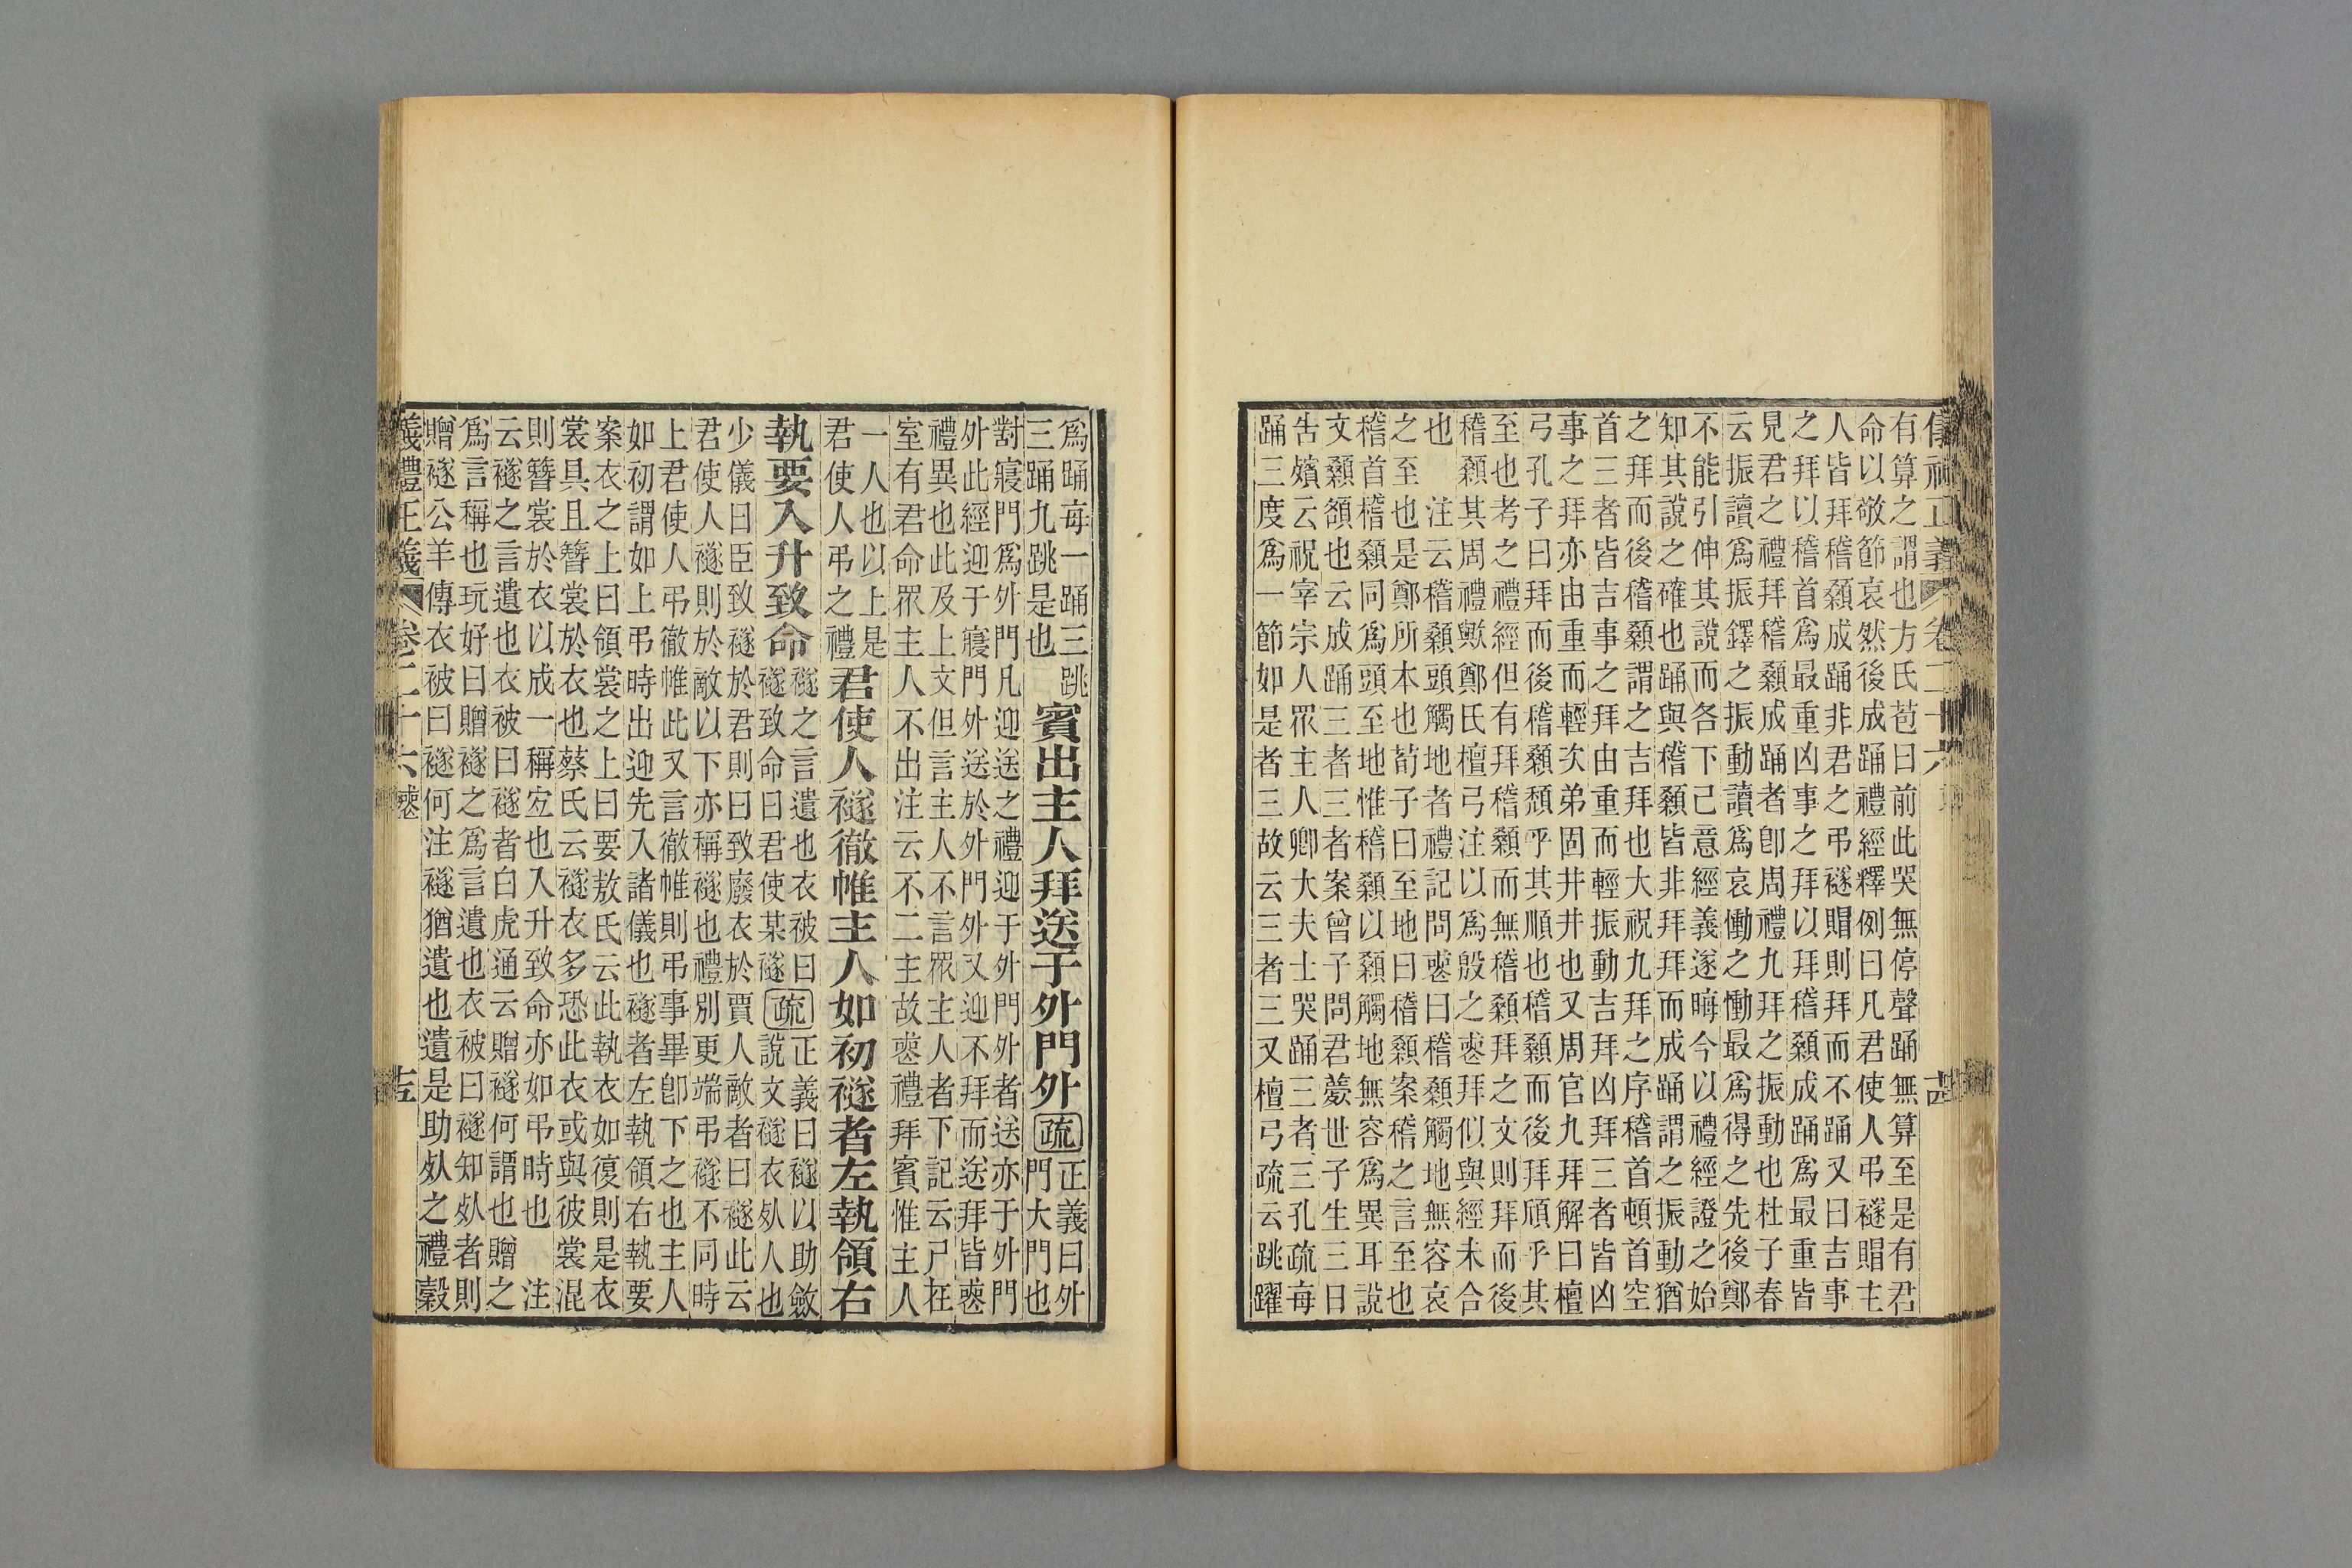 儀禮正義　卷二十六　十四
有算之謂也方氏苞曰前此哭無停聲踊無算至是有君
命以敬節哀然後成踊禮經釋例曰凡君使人弔襚賵主
人皆拜稽顙成踊非君之弔襚賵則拜而不踊又曰吉事
之拜以稽首爲最重凶事之拜以拜稽顙成踊爲最重皆
見君之禮拜稽顙成踊者卽周禮九拜之振動也杜子春
云振讀爲振鐸之振動讀爲哀慟之慟最爲得之先後鄭
不能引伸其說而各下己意經義遂晦今以禮經證之始
知其說之確也踊與稽顙皆非拜拜而成踊謂之振動猶
之拜而後稽顙謂之吉拜也大祝九拜之序稽首頓首空
首三者皆吉事之拜由重而輕振動吉拜凶拜三者皆凶
事之拜亦由重而輕次弟固井井也又周官九拜解曰檀
弓孔子曰拜而後稽顙頹乎其順也稽顙而後拜頎乎其
至也考之禮經但有拜稽顙而無稽顙拜之文則拜而後
稽顙其周禮歟鄭氏檀弓注以爲殷之喪拜似與經未合
也　注云稽顙頭觸地者禮記問喪曰稽顙觸地無容哀
之至也是鄭所本也荀子曰至地曰稽顙案稽之言至也
稽首稽顙同爲頭至地惟稽顙以顙觸地無容爲異耳說
文顙頟也云成踊三者三者案曾子問君薨世子生三日
告殯云祝宰宗人眾主人卿大夫士哭踊三者三孔疏每
踊三度爲一節如是者三故云三者三又檀弓疏云跳躍
爲踊每一踊三跳
三踊九跳是也
賓出主人拜送于外門外
疏
正義曰外
門大門也
對寢門爲外門凡迎送之禮迎于外門外者送亦于外門
外此經迎于寢門外送於外門外又迎不拜而送拜皆喪
禮異也此及上文但言主人不言眾主人者下記云尸在
室有君命眾主人不出注云不二主故喪禮拜賓惟主人
一人也以上是
君使人弔之禮
君使人襚徹帷主人如初襚者左執領右
執要入升致命
襚之言遺也衣被曰
襚致命曰君使某襚
疏
正義曰襚以助斂
說文襚衣死人也
少儀曰臣致襚於君則曰致廢衣於賈人敵者曰襚此云
君使人襚則於敵以下亦稱襚也禮別更端弔襚不同時
上君使人弔徹帷此又言徹帷則弔事畢卽下之也主人
如初謂如上弔時出迎先入諸儀也襚者左執領右執要
案衣之上曰領裳之上曰要敖氏云此執衣如復則是衣
裳具且簪裳於衣也蔡氏云襚衣多恐此衣或與彼裳混
則簪裳於衣以成一稱宜也入升致命亦如弔時也　注
云襚之言遺也衣被曰襚者白虎通云贈襚何謂也贈之
爲言稱也玩好曰贈襚之爲言遺也衣被曰襚知死者則
贈襚公羊傳衣被曰襚何注襚猶遺也遺是助死之禮穀
儀禮正義　卷二十六　喪　十五